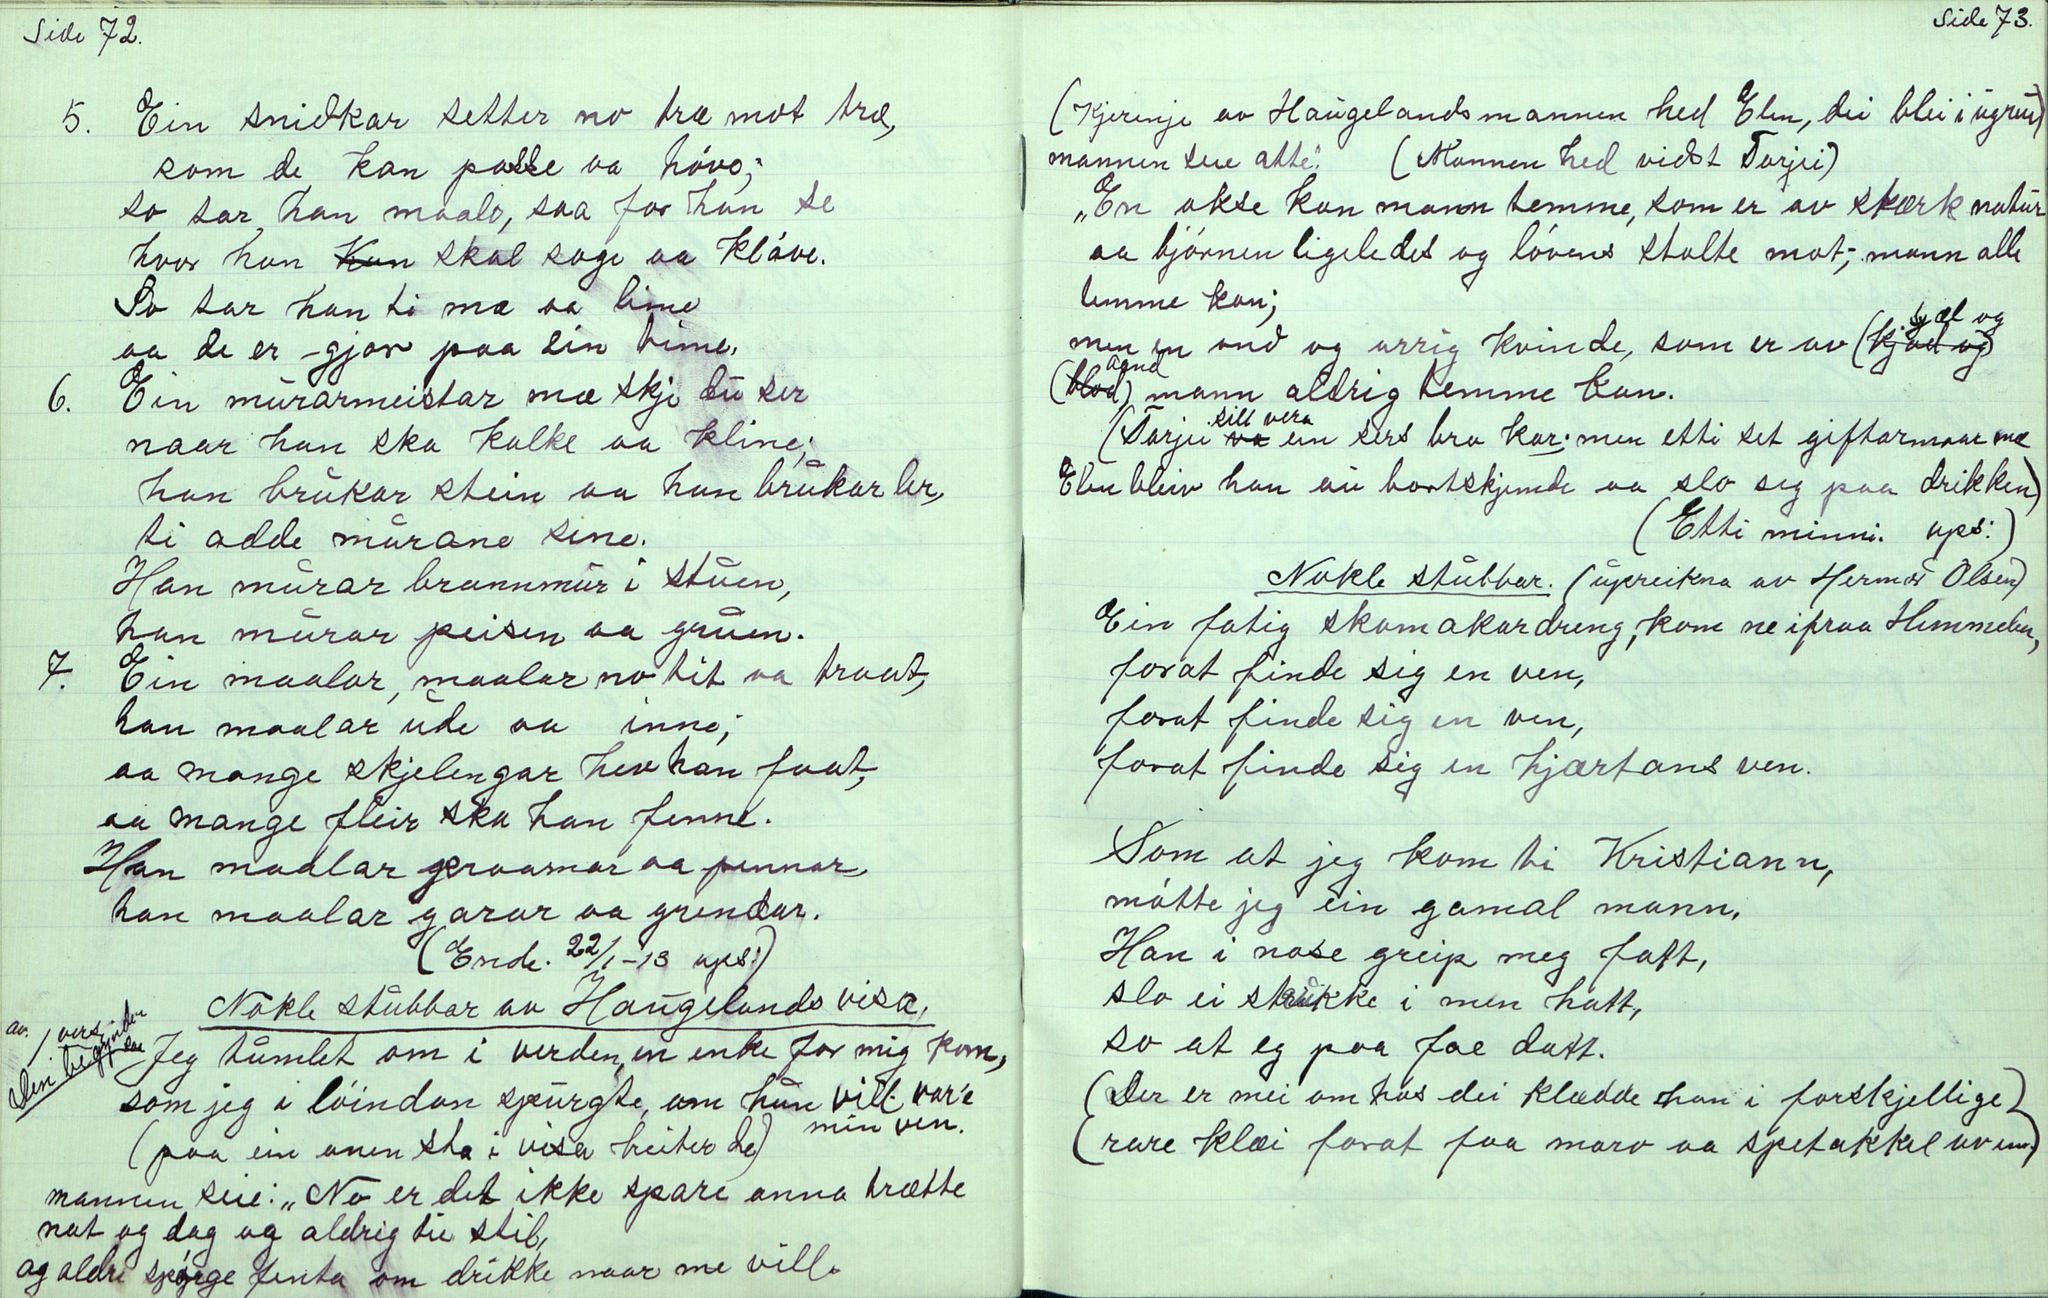 Side 72.
5. Ein snidkar setter no træ mot træ,
som de kan passe aa hóvo;
so tar han maalo, saa far han se
hvor han Kan skal sage aa klóve.
So tar han ti mæ aa lime
aa de er gjor paa ein time.
6. Ein mūrarmeistar mæ skje dū ser
naar han ska kalke aa kline;
han brūkar stein aa han brūkar ler,
ti adde mūrane sine.
Han mūrar brannmūr i stūen,
han mūrar peisen aa grūen.
7. Ein maalar, maalar no tit aa traat,
han maalar ūde aa inne;
aa mange skjelengar hev han faat,
aa mange fleir ska han finne.
Han maalar graamar aa pennar,
han maalar garar aa grendar.
(Ende. 22/1-13 ops:)
Nokle stūbbar av Haūgelands visa,
av. 1 vers,
den begynder saa
Jeg tūmlet om i verden, en enke for mig kom,
som jeg i lóindan spūrgte, om hūn vill var'e
min ven.
(paa ein anen sta i visa heiter de)
mannen seie: "No er det ikke spare anna trætte
nat og dag og aldrig tie stil,
og aldri spørge fenta om drikke naar me vill.
Side 73.
(Kjerinje av Haūgelandsmannen hed Elen, dei blei i ūgreie)
mannen seie atte: (Mannen hed vidst Tarjei)
"En okse kan mann temme, som er av stærk natūr
aa bjórnen ligeledes og lóvens stolte mot; mann alle
temme kan;
men en ond og arrig kvinde, som er av (kjød og) sjæl og
(blod) aand mann aldrig temme kan.
(Tarjei va sill vera ein sers bra kar; men etti set giftarmaar mæ
Elen bleiv han ūi bortskjemde aa slo seg paa drikken)
(Etti minni. ops:)
Nokle stūbbar. (ūpreikna av Herman Olsen)
Ein fatig skomakardreng, kom ne ipraa Himmelen,
forat finde sig en ven,
forat finde sig en ven,
forat finde sig en hjærtans ven.
Som at jeg kom ti Kristiann,
mótte jeg ein gamal mann,
Han i nase greip meg fatt,
slo ei stūkke i men hatt,
so at eg paa foe datt.
(Der er mei om hos dei klædde han i forskjellige)
(rare klæi forat faa maro aa spetakkel av em)